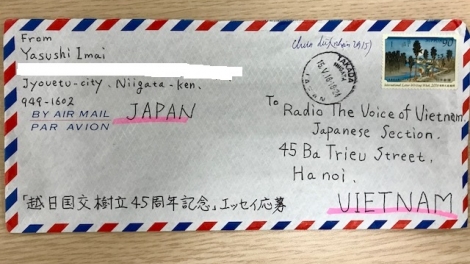 From
Yasushi Imai
Jyouetu-city, Niigata-ken.
949-1602
BY AIR MAIL
PAR AVION
JAPAN
TAKADA
NIIGATA
JAPAN
90
To Radio The Voice of Vietnam
Japanese Section.
45 Ba Trieu Street,
Hanoi.
VIETNAM
「越日国交樹立45周年記念」エッセイ応募